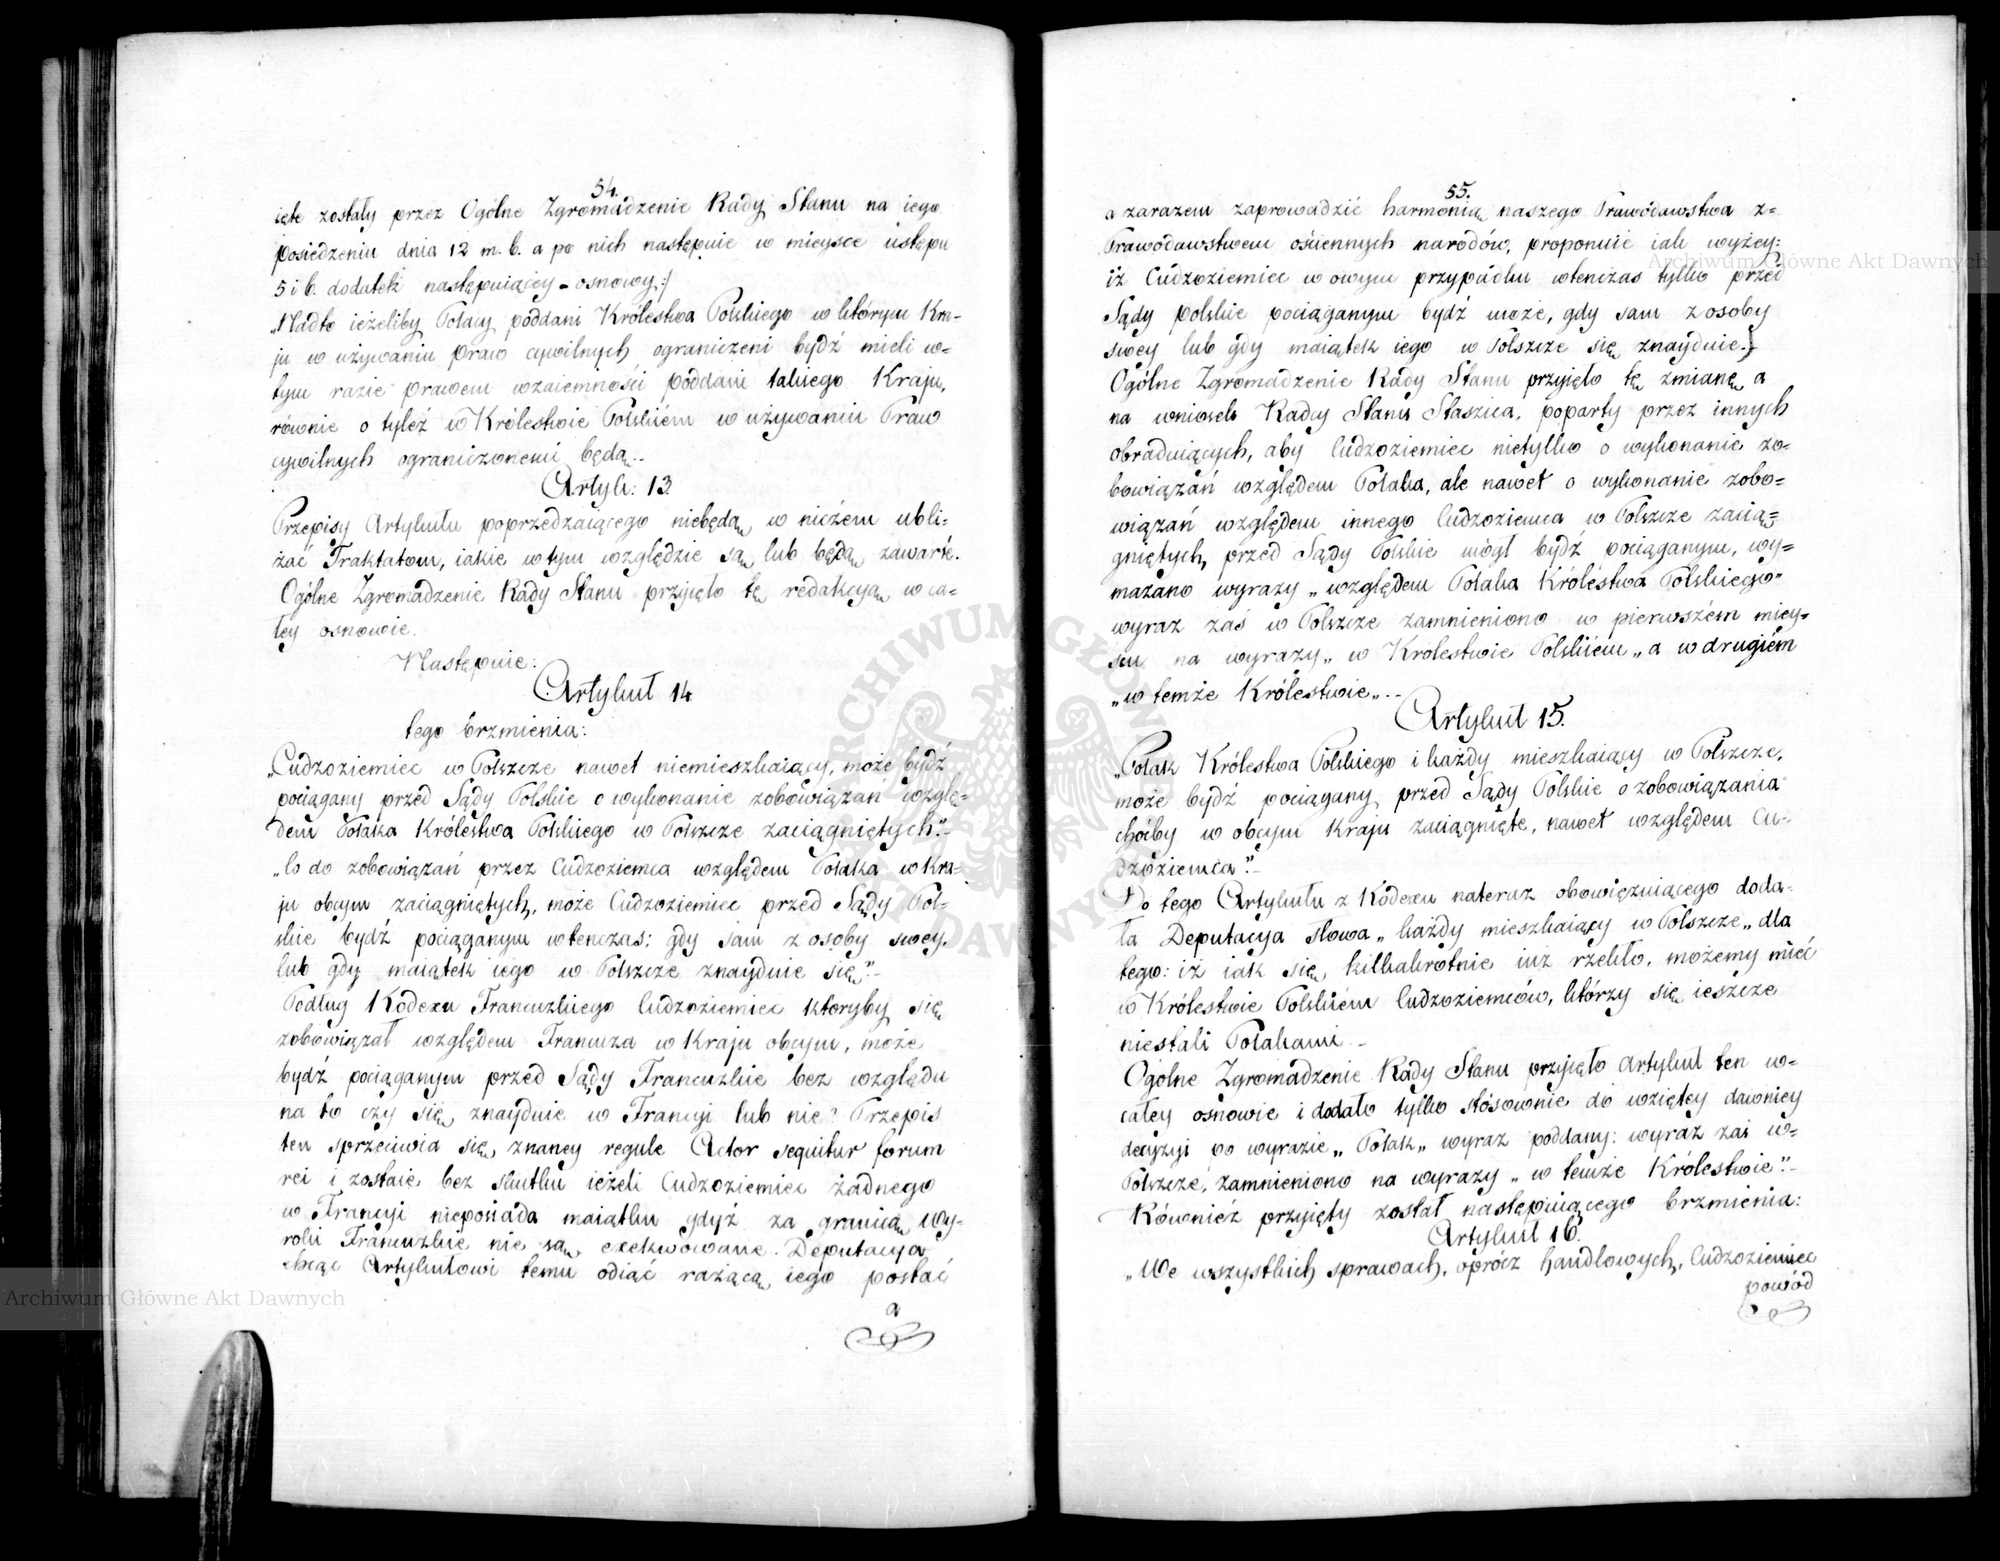 54.
ięte zostały przez Ogólne Zgromadzenie Rady Stanu na iego
posiedzeniu dnia 12 m. b. a po nich następuie w mieysce ustępu
5 i 6. dodatek następuiącey osnowy:/
„Nadto ieżeliby Polacy poddani Królestwa Polskiego w którym Kra=
ju w używaniu praw cywilnych ograniczeni bydź mieli w=
tym razie prawem wzaiemności poddani takiego Kraju,
równie o tyleż w Królestwie Polskiém w używaniu Praw
cywilnych ograniczonemi będą..
Artyk: 13.
Przepisy Artykułu poprzedzaiącego niebędą w niczém ubli=
żać Traktatom, iakie w tym względzie są lub będą zawarte.
Ogólne Zgromadzenie Rady Stanu przyięło tę redakcyą w ca=
łey osnowie.
Następnie:
Artykuł 14
tego brzmienia:
„Cudzoziemiec w Polszcze nawet niemieszkaiący, może bydź
pociągany przed Sądy Polskie o wykonanie zobowiązań wzglę=
dem Polaka Królestwa Polskiego w Polszcze zaciągniętych.”
„Co do zobowiązań przez Cudzoziemca względem Polaka w Kra=
ju obcym zaciągniętych, może Cudzoziemiec przed Sądy Pol=
skie bydź pociąganym wtenczas: gdy sam z osoby swey,
lub gdy maiątek iego w Polszcze znayduie się.”
Podług Kodexu Francuzkiego Cudzoziemiec któryby się
zobowiązał względem Francuza w Kraju obcym, może
bydź pociąganym przed Sądy Francuzkie bez względu
na to czy się znayduie w Francyi lub nie? Przepis
ten sprzeciwia się znaney regule Actor sequitur forum
rei i zostaie bez skutku ieżeli Cudzoziemiec żadnego
w Francyi nieposiada maiątku gdyż za granicą Wy-
roki Francuzkie nie są exekwowane. Deputacya
chcąc Artykułowi temu odiąć rażącą iego postać
a
55.
a zarazem zaprowadzić harmonią naszego Prawodawstwa z=
Prawodawstwem ościennych narodów, proponuie iak wyżey:
iż Cudzoziemiec w owym przypadku wtenczas tylko przed
Sądy polskie pociąganym bydź może, gdy sam z osoby
swey lub gdy maiątek iego w Polszcze się znayduie.)
Ogólne Zgromadzenie Rady Stanu przyięło tę zmianę a
na wniosek Radcy Stanu Staszica, poparty przez innych
obraduiących, aby Cudzoziemiec nietylko o wykonanie zo=
bowiązań względem Polaka, ale nawet o wykonanie zobo=
wiązań względem innego Cudzoziemca w Polszcze zacią=
gniętych, przed Sądy Polskie mógł bydź pociąganym, wy=
mazano wyrazy „względem Polaka Królestwa Polskiego”
wyraz zaś w Polszcze zamnieniono w pierwszém miey=
scu na wyrazy „w Królestwie Polskiém„ a w drugiém
„w temże Królestwie„..
Artykuł 15.
„Polak Królestwa Polskiego i każdy mieszkaiący w Polszcze,
może bydź pociągany przed Sądy Polskie o zobowiązania
choćby w obcym Kraju zaciągnięte, nawet względem Cu-
dzoziemca.”
Do tego Artykułu z Kodexu nateraz obowięzuiącego doda-
ła Deputacya słowa „każdy mieszkaiący w Polszcze„ dla
tego: iż iak się kilkakrotnie iuż rzekło, możemy mieć
w Królestwie Polskiém Cudzoziemców, którzy się ieszcze
niestali Polakami.
Ogólne Zgromadzenie Rady Stanu przyięło Artykuł ten w=
całey osnowie i dodało tylko stósownie do wziętey dawniey
decyzyi po wyrazie „Polak„ wyraz poddany: wyraz zaś w=
Polszcze, zamnieniono na wyrazy „w temże Królestwie”.
Również przyięty został następuiącego brzmienia:
Artykuł 16.
„We wszystkich sprawach, oprócz handlowych, Cudzoziemiec
powód
Archiwum Główne Akt Dawnych
Archiwum Główne Akt Dawnych
ARCHIWUM GŁÓWNE AKT DAWNYCH